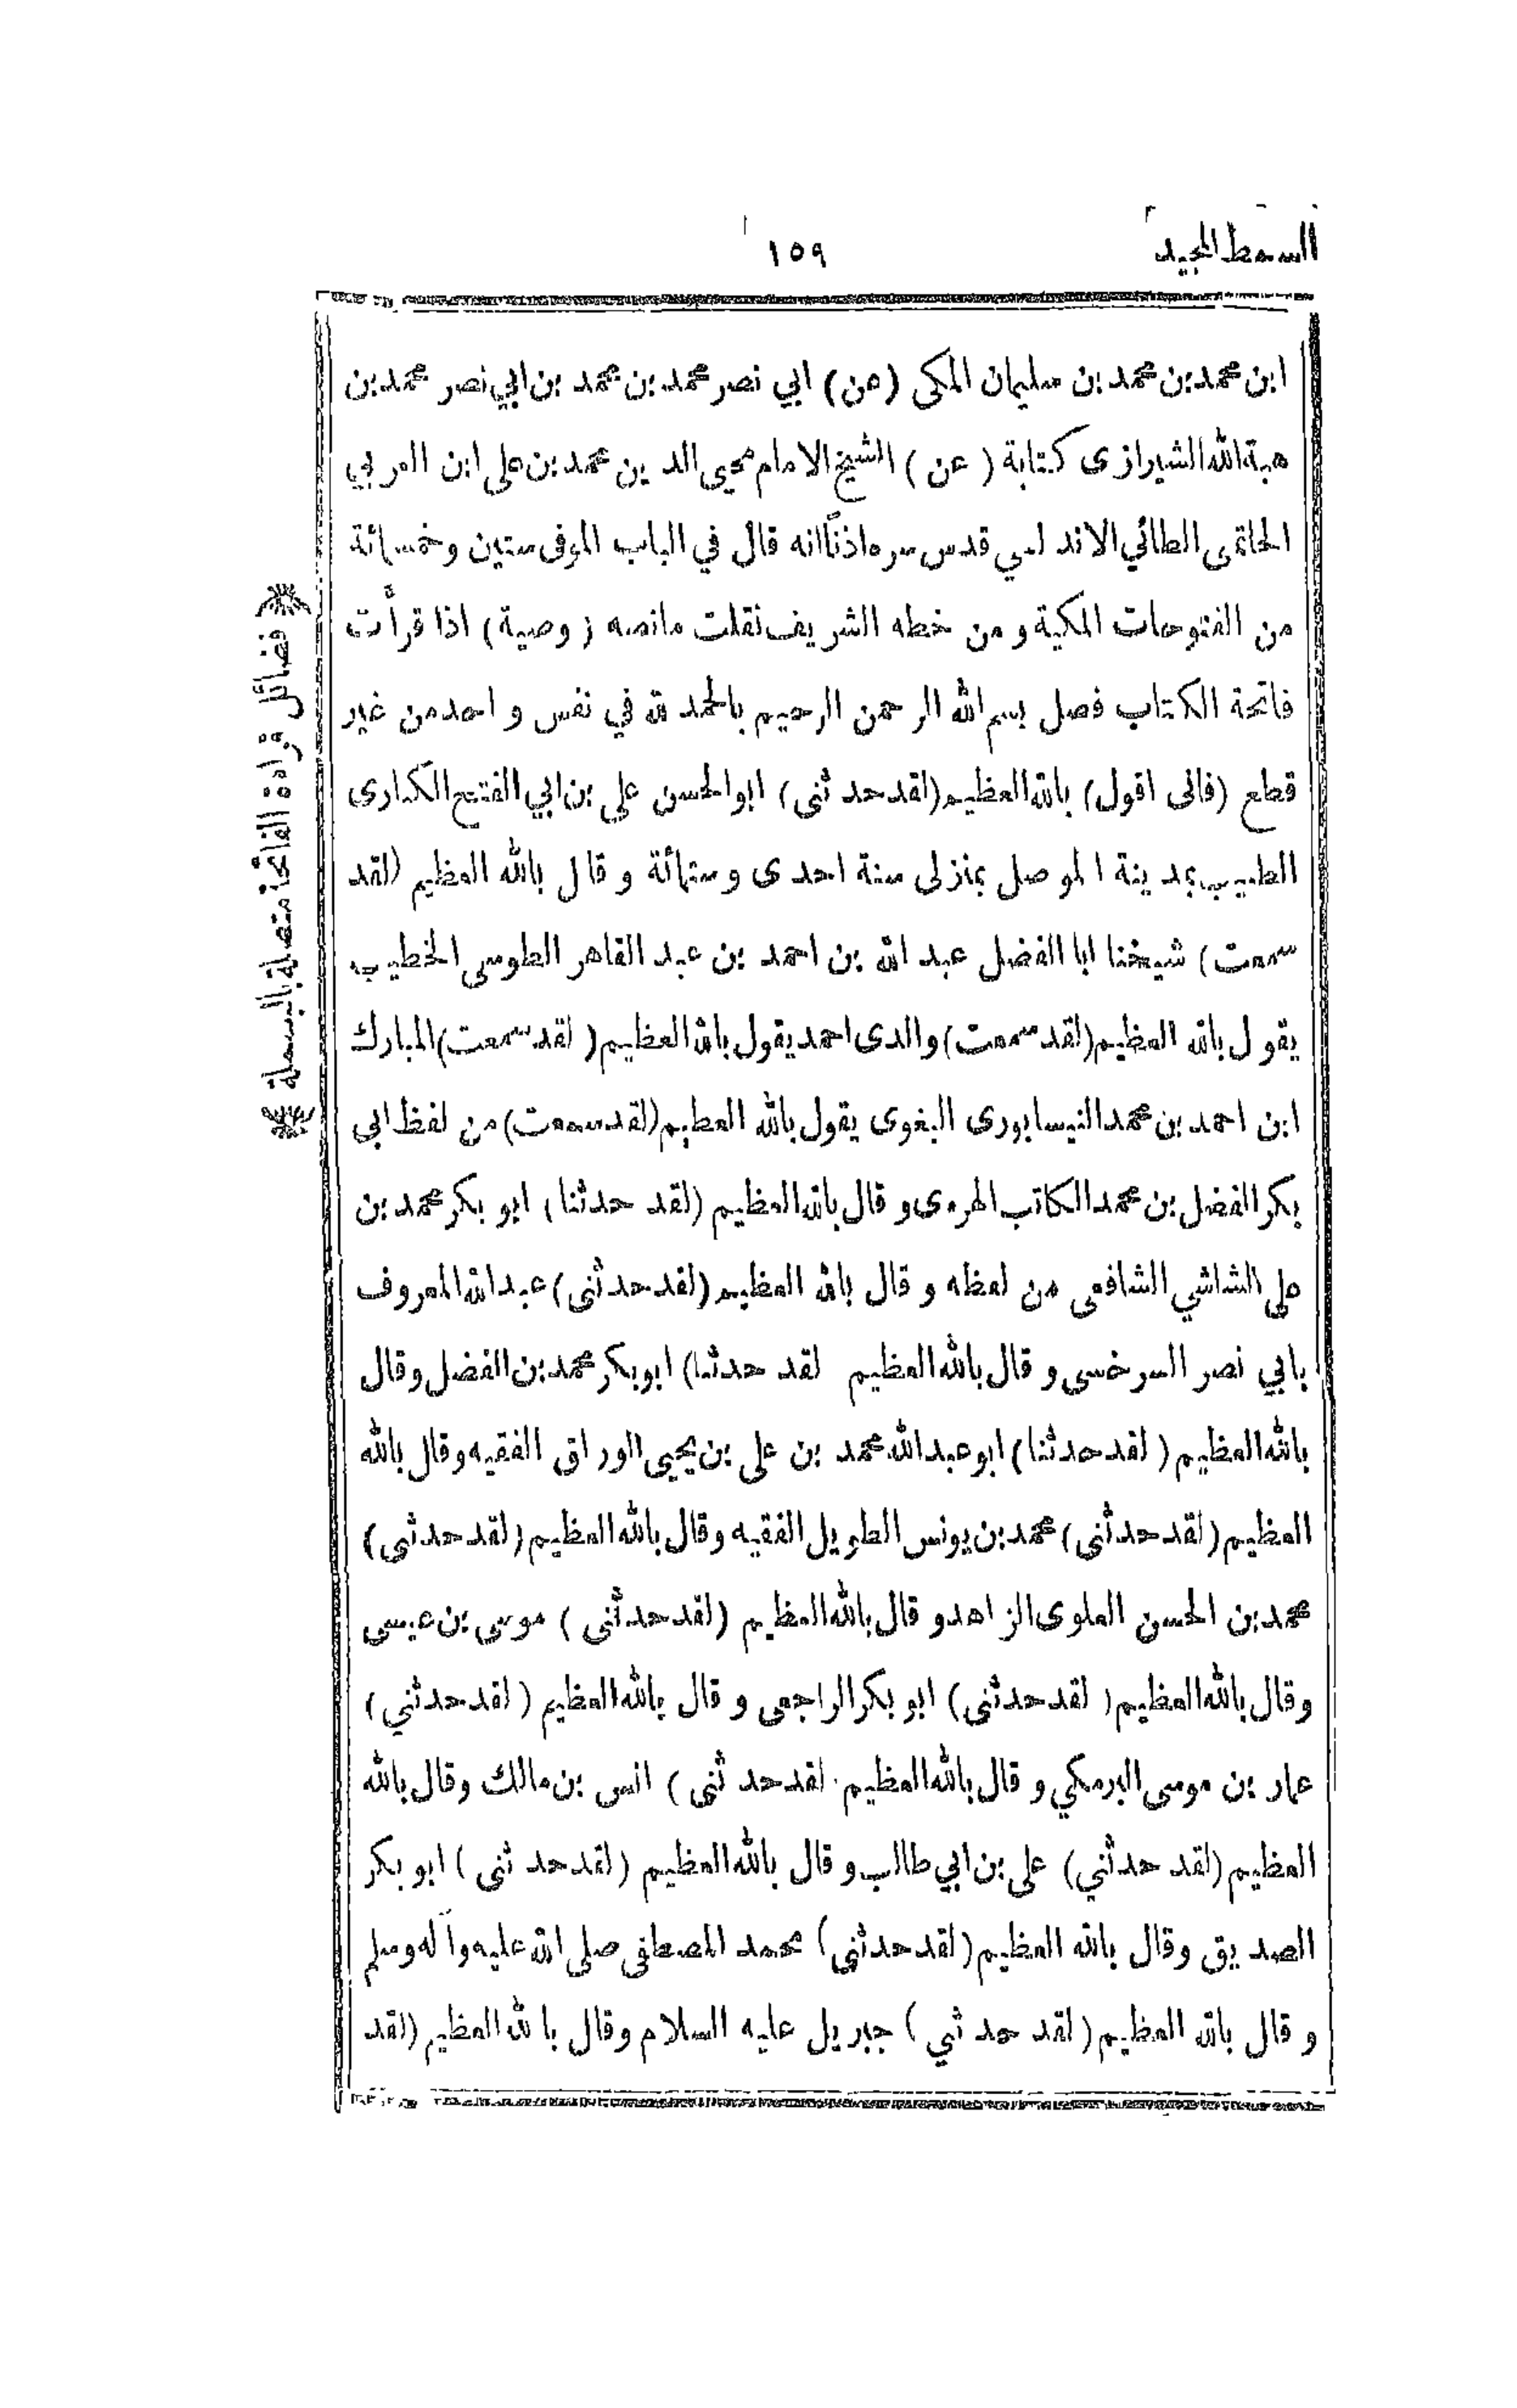 السمط المجيد
١٥٩
ابن محمد بن محمد بن سليمان المكى (عن) ابي نصر محمد بن محمد بن ابي نصر محمد بن
هبة الله الشيرازى كتابة (عن) الشيخ الامام محيى الدين محمد بن على ابن العربي
الحاتمى الطائي الاندلسي قدس سره اذنًا انه قال في الباب الموفى ستين وخمسمائة
من الفتوحات المكية و من خطه الشريف نقلت مانصه (وصية) اذا قرأت
فاتحة الكتاب فصل بسم الله الرحمن الرحيم بالحمد لله في نفس واحد من غير
قطع (فانى اقول) بالله العظيم (لقد حدثنى) ابوالحسن علي بن ابي الفتح الكنارى
الطبيب بمدينة الموصل بمنزلى سنة احدى وستمائة و قال بالله العظيم (لقد
سمعت) شيخنا ابا الفضل عبد الله بن احمد بن عبد القاهر الطوسى الخطيب
يقول بالله العظيم (لقد سمعت) والدى احمد يقول بالله العظيم (لقد سمعت) المبارك
ابن احمد بن محمد النيسابورى البغوى يقول بالله العظيم (لقد سمعت) من لفظ ابى
بكر الفضل بن محمد الكاتب الهروى و قال بالله العظيم (لقد حدثنا) ابو بكر محمد بن
على الشاشي الشافعى من لفظه و قال بالله العظيم (لقد حدثنى) عبد الله المعروف
بابي نصر السرخسى و قال بالله العظيم لقد حدثنا) ابوبكر محمد بن الفضل وقال
بالله العظيم (لقد حدثنا) ابو عبد الله محمد بن على بن يحيى الوراق الفقيه وقال بالله
العظيم (لقد حدثنى) محمد بن يونس الطويل الفقيه وقال بالله العظيم (لقد حدثنى)
محمد بن الحسن العلوى الزاهد و قال بالله العظيم (لقد حدثنى) موسى بن عيسى
وقال بالله العظيم (لقد حدثنى) ابو بكر الراجعى و قال بالله العظيم (لقد حدثني)
عمار بن موسى البرمكي و قال بالله العظيم لقد حدثنى) انس بن مالك وقال بالله
العظيم (لقد حدثني) على بن ابي طالب و قال بالله العظيم (لقد حدثنى) ابو بكر
الصديق وقال بالله العظيم (لقد حدثنى) محمد المصطفى صلى الله عليه وآله وسلم
و قال بالله العظيم (لقد حدثني) جبريل عليه السلام وقال بالله العظيم (لقد
فضائل قراءة الفاتحة متصلة بالبسملة